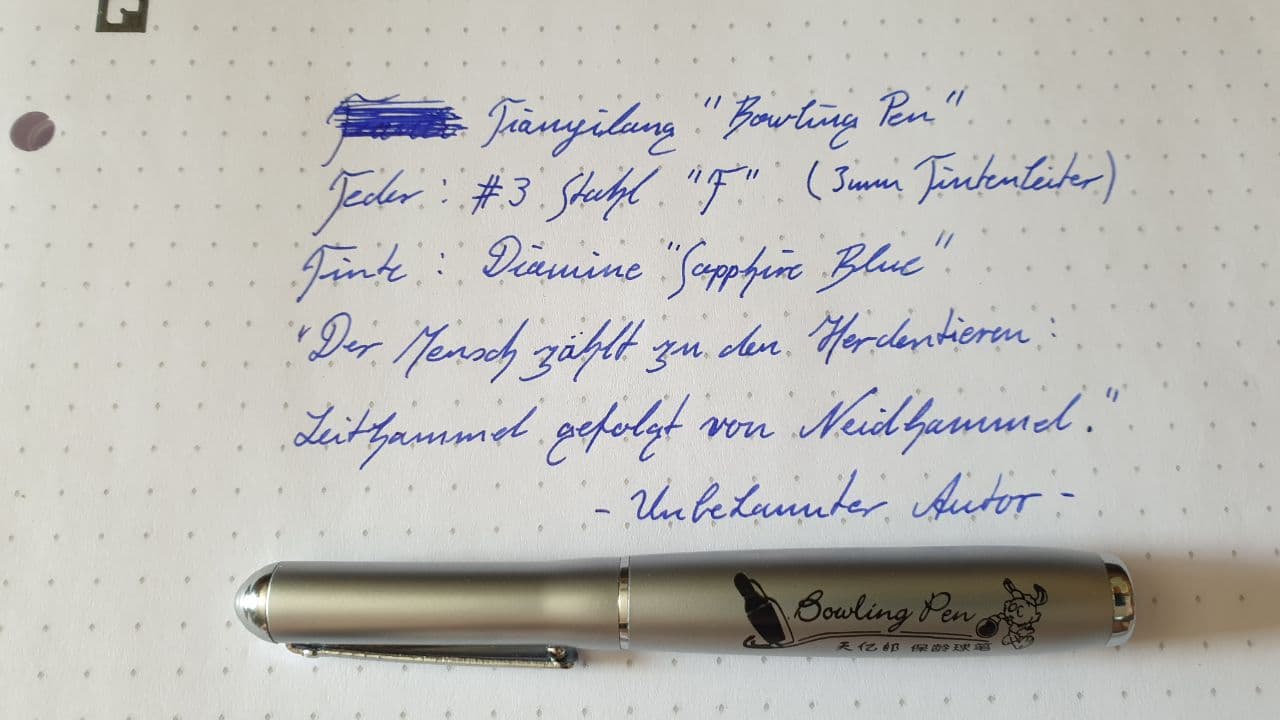 Tianyilang "Bowling Pen"
Feder: #3 Stahl "F" (3mm Tintenleiter)
Tinte: Diamine "Sapphire Blue"
"Der Mensch zählt zu den Herdentieren:
Leithammel gefolgt von Neidhammel."
- Unbekannter Autor -
Bowling Pen
天亿郎 保龄球笔